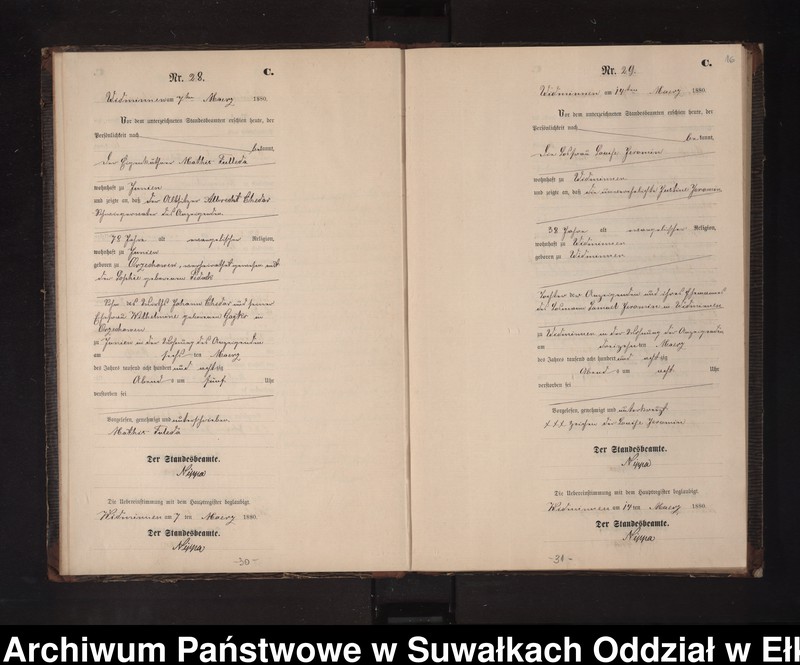 Nr. 28.
C.
Widminnen am 7ten Maerz 1880.
Vor dem unterzeichneten Standesbeamten erschien heute, der
Persönlichkeit nach
bekannt,
der Eigenkäthner Mathes
wohnhaft zu
und zeigte an, daß der Altsitzer Albrecht
des Anzeigenden
78 Jahre alt evangelischer Religion,
wohnhaft zu
geboren zu Orzechowen, verheirathet gewesen mit
der Sophie geborenen
Sohn des Johann und seiner
Ehefrau Wilhelmine geborenen in
Orzechowen
zu in der Wohnung des Anzeigenden
am sechs ten Maerz
des Jahres tausend acht hundert und acht zig
Abend s um fünf Uhr
verstorben sei
Vorgelesen, genehmigt und unterschrieben.
Mathes
Der Standesbeamte.
Nippa
Die Uebereinstimmung mit dem Hauptregister beglaubigt.
Widminnen am 7 ten Maerz 1880.
Der Standesbeamte.
Nippa
-30-
Nr. 29.
C.
16
Widminnen am 14ten Maerz 1880.
Vor dem unterzeichneten Standesbeamten erschien heute, der
Persönlichkeit nach
bekannt,
die Louise Jeromin
wohnhaft zu Widminnen
und zeigte an, daß die unverehelichte Justine Jeromin
38 Jahre alt evangelischer Religion,
wohnhaft zu Widminnen
geboren zu Widminnen
Tochter der Anzeigenden und ihres Ehemannes
des Samuel Jeromin in Widminnen
zu Widminnen in der Wohnung der Anzeigenden
am dreizehn ten Maerz
des Jahres tausend acht hundert und acht zig
Abend s um acht Uhr
verstorben sei
Vorgelesen, genehmigt und unterkreuzt
+++ Zeichen der Louise Jeromin
Der Standesbeamte.
Nippa
Die Uebereinstimmung mit dem Hauptregister beglaubigt.
Widminnen am 14 ten Maerz 1880.
Der Standesbeamte.
Nippa
-31-
Archiwum Państwowe w Suwałkach Oddział w Ełk